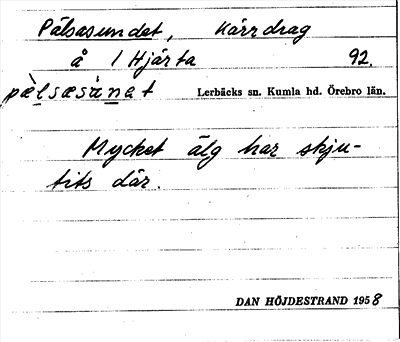 Pålsasundet, Kärrdrag
å 1 Hjärta 92.
pàlsæsànet Lerbäcks sn. Kumla hd. Örebro län.
Mycket älg har skju-
tits där.
DAN HÖJDESTRAND 1958